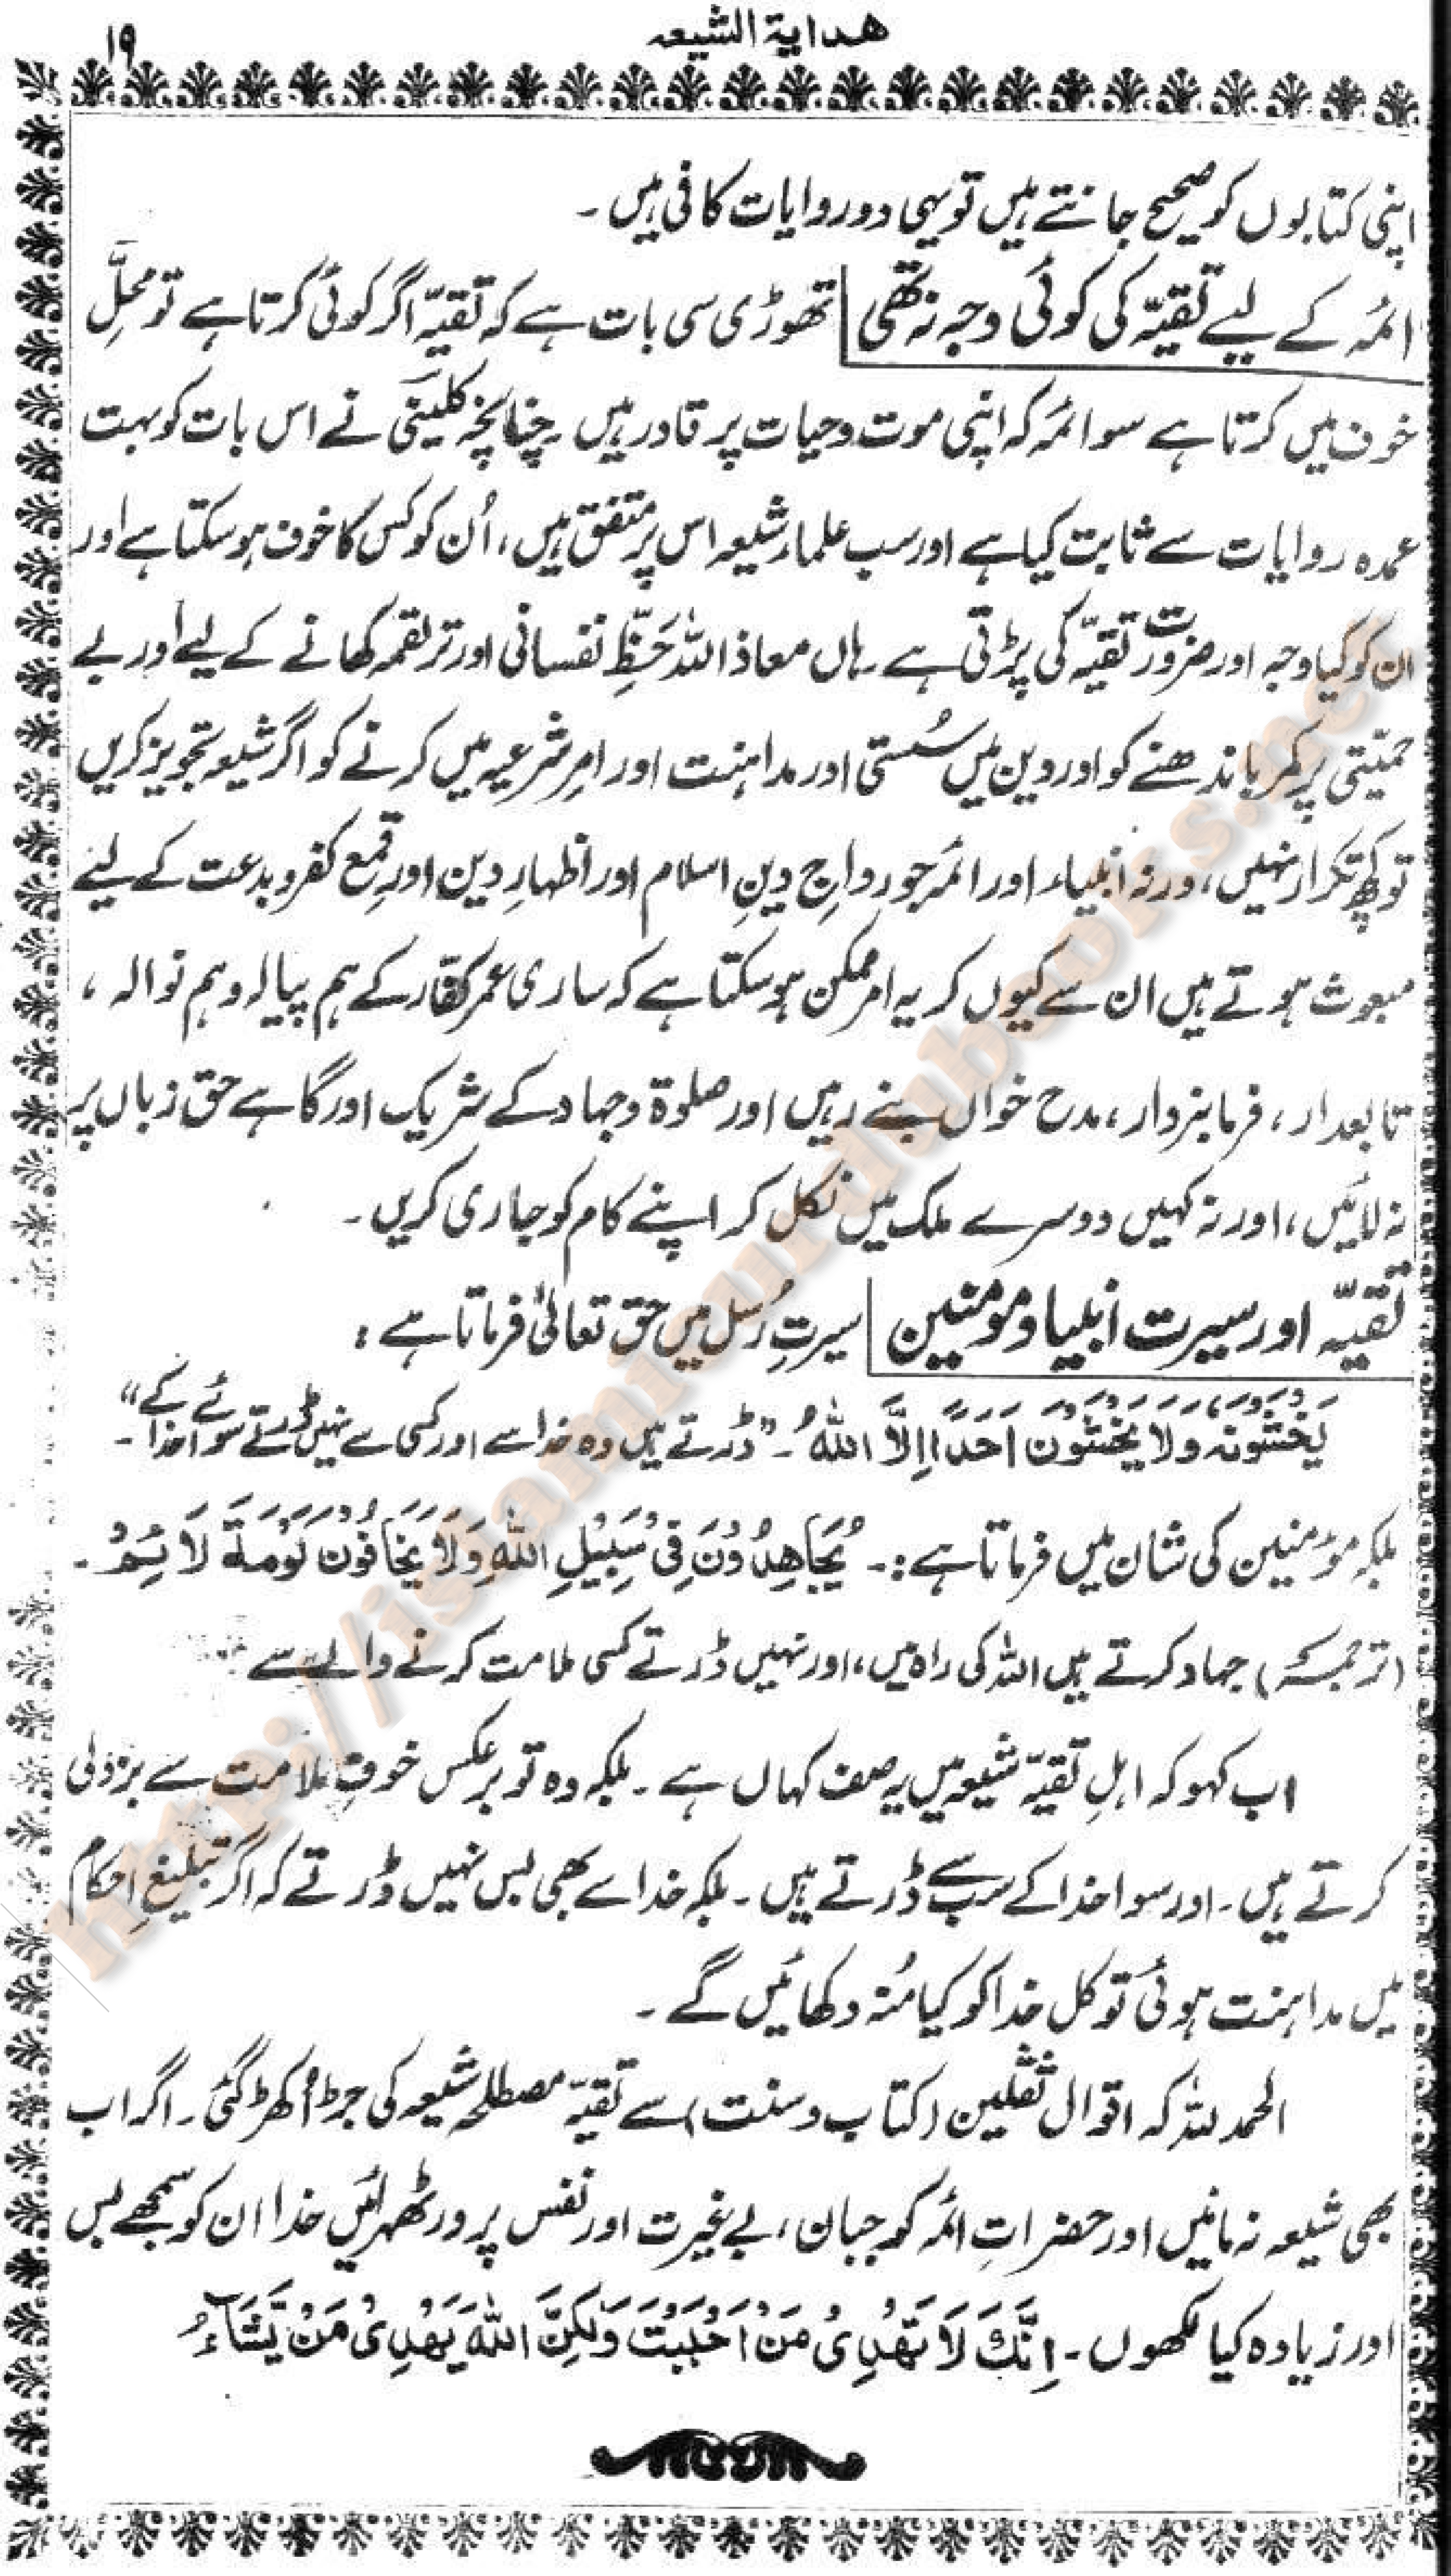 هدایة الشیعہ
۱۹
اپنی کتابوں کو صحیح جانتے ہیں تو یہی دو روایات کافی ہیں ۔
ائمہ کے لیے تقیّہ کی کوئی وجہ نہ تھی تھوڑی سی بات ہے کہ تقیّہ اگر کوئی کرتا ہے تو محلِّ
خوف میں کرتا ہے سو ائمہ کہ اپنی موت و حیات پر قادر ہیں ۔ چنانچہ کلینی نے اس بات کو بہت
عمدہ روایات سے ثابت کیا ہے اور سب علمار شیعہ اس پر متفق ہیں ، اُن کو کس کا خوف ہو سکتا ہے اور
ان کو کیا وجہ اور ضرورت تقیّہ کی پڑتی ہے ۔ ہاں معاذ اللہ حَظِّ نفسانی اور تر لقمہ کھانے کے لیے اور بے
حمیّتی پر کمر باندھنے کو اور دین میں سُستی اور مداہنت اور امرِ شرعیہ میں کرنے کو اگر شیعہ تجویز کریں
تو کچھ تکرار نہیں ، ورنہ انبیاء اور ائمہ جو رواجِ دینِ اسلام اور اظہارِ دین اور قمع کفر و بدعت کے لیے
مبعوث ہوتے ہیں ان سے کیوں کر یہ امر ممکن ہو سکتا ہے کہ ساری عمر کفّار کے ہم پیالہ و ہم نوالہ ،
تابعدار ، فرمانبردار ، مدح خواں بنے رہیں اور صلوۃ و جہاد کے شریک اور گاہے حق زباں پر
نہ لائیں ، اور نہ کہیں دوسرے ملک میں نکل کر اپنے کام کو جاری کریں ۔
تقیّہ اور سیرت انبیا و مومنین سیرتِ رُسل میں حق تعالیٰ فرماتا ہے :
یَخْشَوْنَہٗ وَلَا یَخْشَوْنَ اَحَدًا اِلَّا اللہُ ۔ ”ڈرتے ہیں وہ خدا سے اور کسی سے نہیں ڈرتے سوائے خدا کے“ ۔
بلکہ مؤمنین کی شان میں فرماتا ہے :۔ یُجَاھِدُوْنَ فِیْ سَبِیْلِ اللہِ وَلَا یَخَافُوْنَ لَوْمَۃَ لَائِمٍ ۔
(ترجمہ) جہاد کرتے ہیں اللہ کی راہ میں ، اور نہیں ڈرتے کسی ملامت کرنے والے سے
اب کہو کہ اہلِ تقیّہ شیعہ میں یہ صف کہاں ہے ۔ بلکہ وہ تو برعکس خوفِ ملامت سے بزدلی
کرتے ہیں ۔ اور سوا خدا کے سب سے ڈرتے ہیں ۔ بلکہ خدا سے بھی بس نہیں ڈرتے کہ اگر تبلیغِ احکام
میں مداہنت ہوئی تو کل خدا کو کیا مُنہ دکھائیں گے ۔
الحمد للہ کہ اقوال ثقلین (کتاب و سنت) سے تقیّہ مصطلحہ شیعہ کی جڑ اُکھڑ گئی ۔ اگر اب
بھی شیعہ نہ مانیں اور حضراتِ ائمہ کو جبان ، بے غیرت اور نفس پرور ٹھہرائیں خدا ان کو سمجھے بس
اور زیادہ کیا لکھوں ۔ اِنَّکَ لَا تَھْدِیْ مَنْ اَحْبَبْتَ وَلٰکِنَّ اللہَ یَھْدِیْ مَنْ یَّشَآءُ
http://islamiurdubooks.net